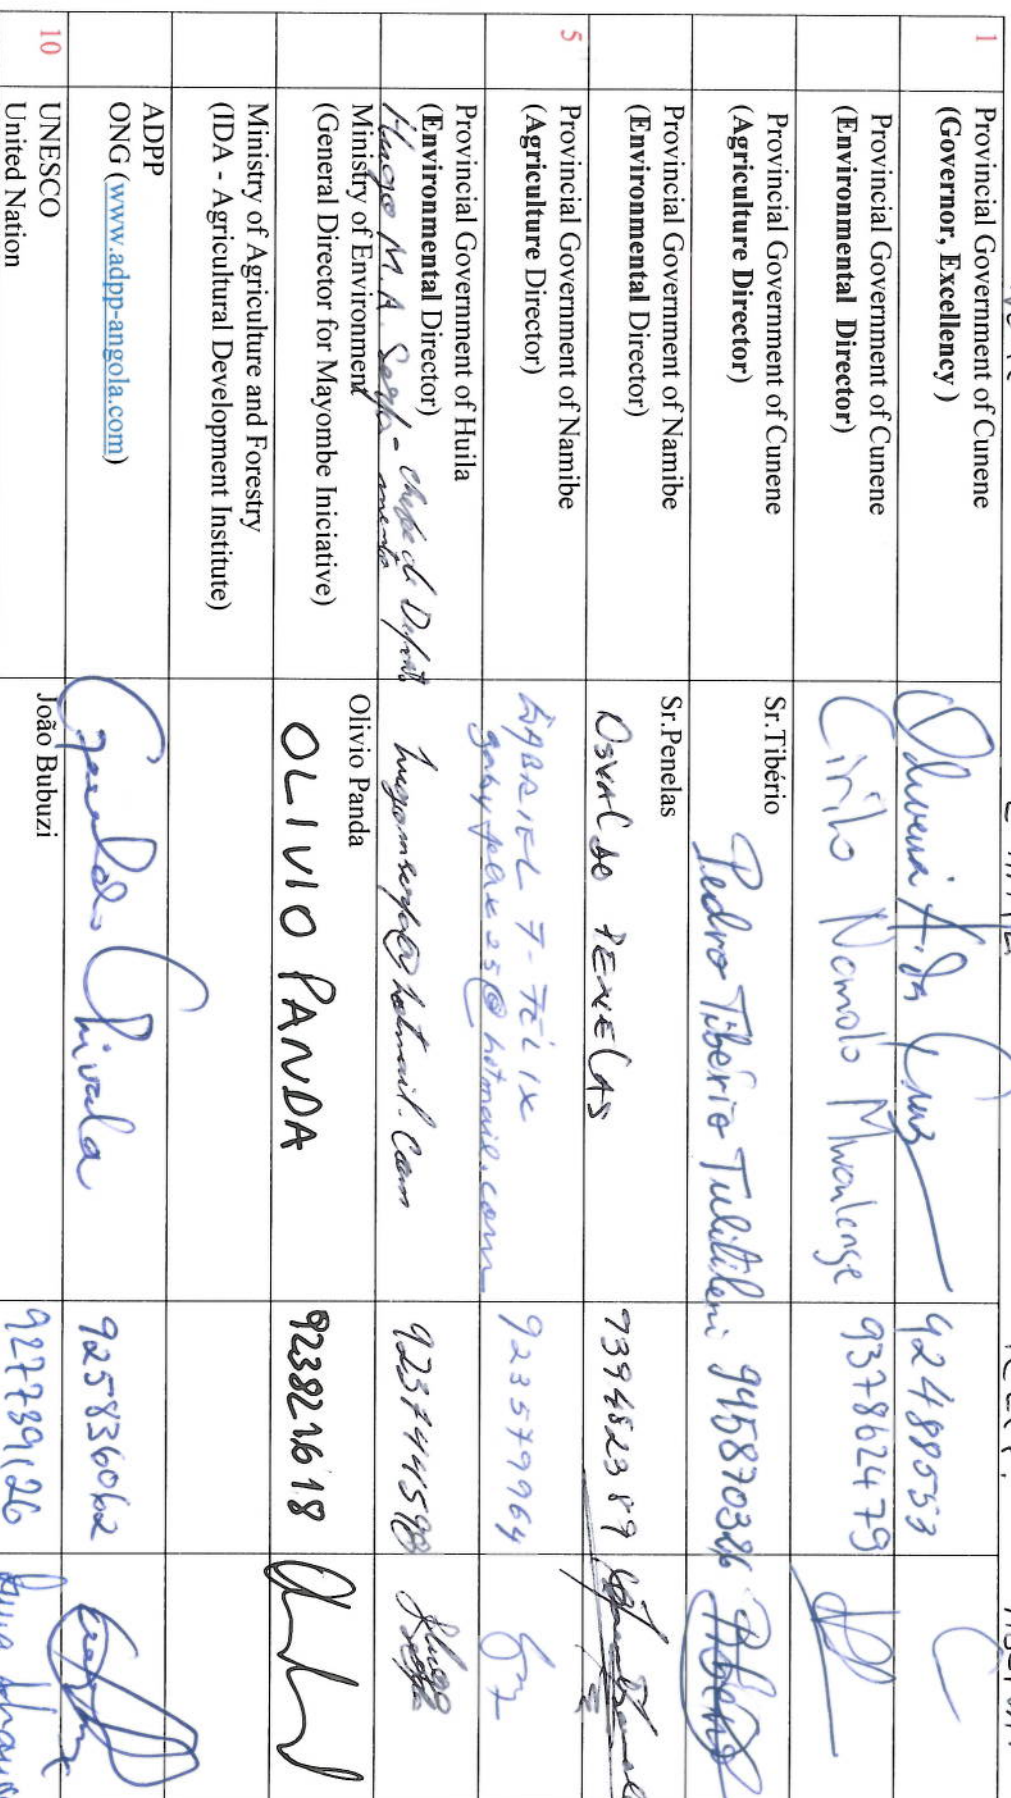 1
Provincial Government of Cunene
(Governor, Excellency )
Oliveira A. da Cruz
92488553
Provincial Government of Cunene
(Environmental Director)
Cirilo Nomolo
937862479
Provincial Government of Cunene
(Agriculture Director)
Sr.Tibério
Pedro Tibério Tulitileni
Provincial Government of Namibe
(Environmental Director)
Sr.Penelas
OSVALDO PENELAS
5
Provincial Government of Namibe
(Agriculture Director)
GABRIEL F. FÉLIX
gabyfelix25@hotmail.com
923579964
Provincial Government of Huila
(Environmental Director)
Hugo M.A. Serpa - chefe de
hugomserpa@hotmail.com
Ministry of Environment
(General Director for Mayombe Iniciative)
Olivio Panda
OLIVIO PANDA
Ministry of Agriculture and Forestry
(IDA - Agricultural Development Institute)
ADPP
ONG (www.adpp-angola.com)
925836062
10
UNESCO
United Nation
João Bubuzi
927739126